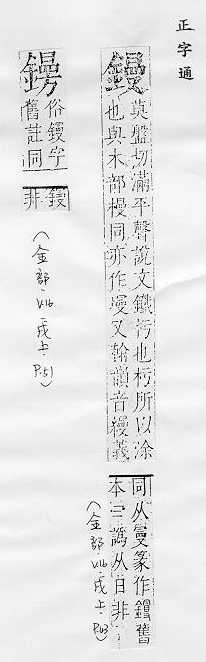 正字通
鏝
莫盤切滿平聲說文鐵杇也杇所以涂
也與木部槾同亦作墁又翰韻音縵義
同从曼篆作鏝舊
譌从日非
(金部.V.16.戌上.P.63)
俗鏝字
舊註同
鏝
非
(金部.V.16.戌上.P.51)